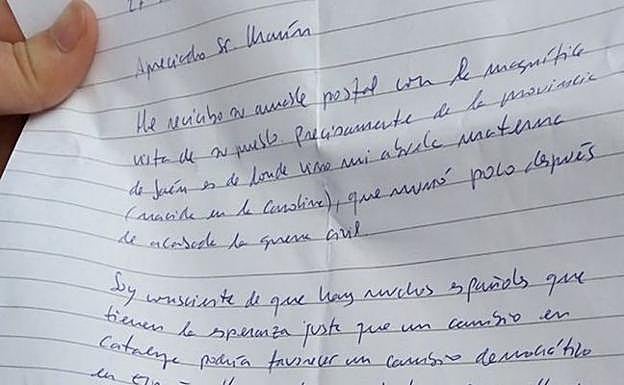 Apreciado Sr. Marín
He recibido su amable postal con la magnífica
vista de su pueblo. Precisamente de la provincia
de Jaén es de donde vino mi abuela materna
(nacida en la Carolina), que murió poco después
de acabada la guerra civil.
Soy consciente de que hay muchos españoles que
tienen la esperanza justa que un cambio en
Catalunya podría favorecer un cambio democrático
en